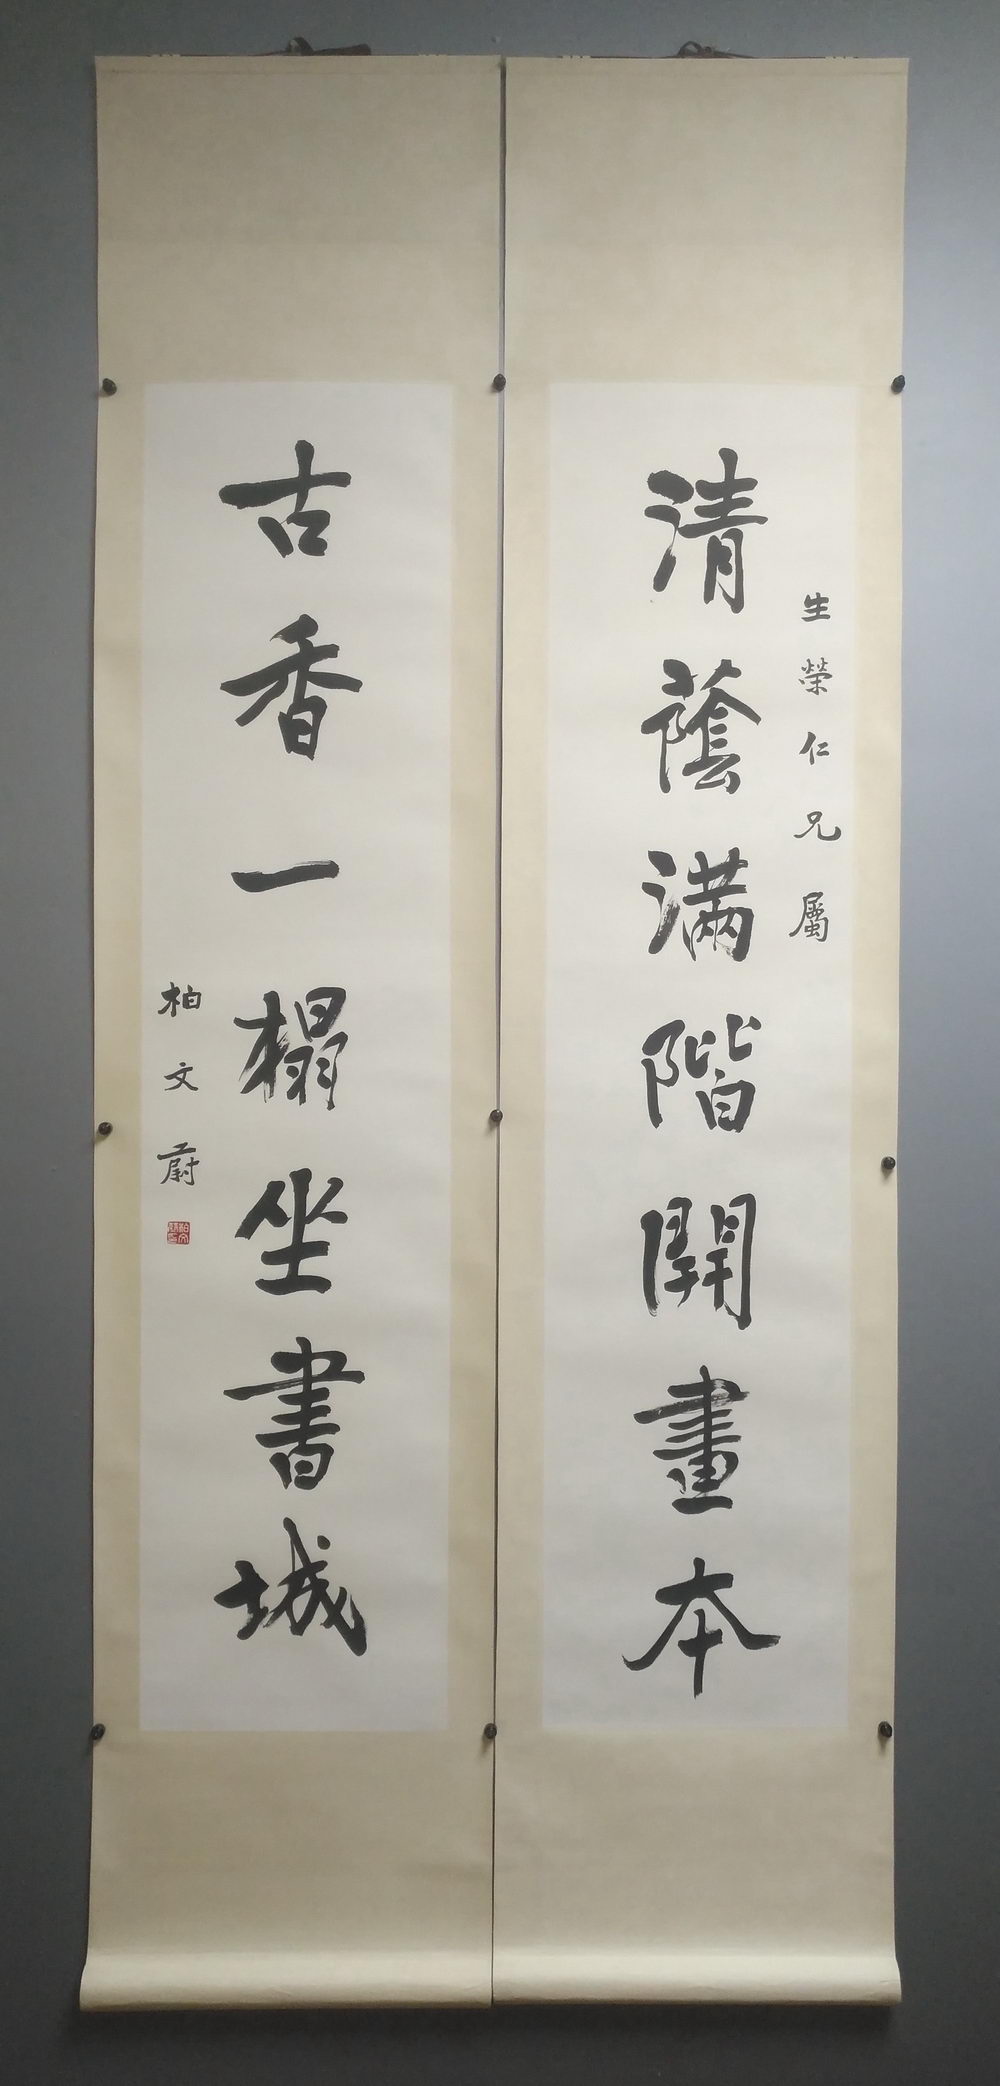 生榮仁兄屬
清蔭滿階開畫本
古香一榻坐書城
柏文蔚